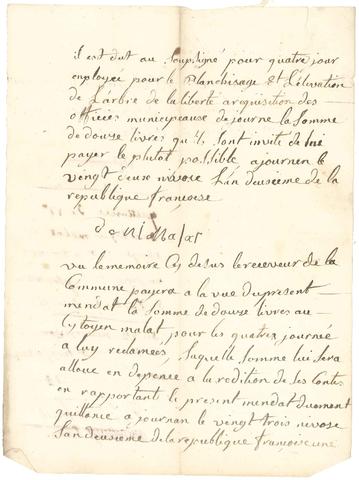 il est dut au Soupligné pour quatre jour
employee pour le Planchisage et L'elevation
de L'arbre de la liberté a requisition des
officies municypeause de journe la Somme
de douze livres qu'ils sont invite de lui
payer le plutot possible, a journen le
vingt deuse nivose L'an deusieme de la
republique francoise
vu le memoire cy desus le receveur de la
Commune payera a la vue du present
mendat la Somme de douze livres au
Cytoyen malat pour les quatre journée
a luy reclameés, laquelle somme lui sera
alloue en depence a la redition de ses Contes
en rapportant le present mendat duoment
quittancé a journan le vingt trois nivose
Lan deusieme de la republique francoise une